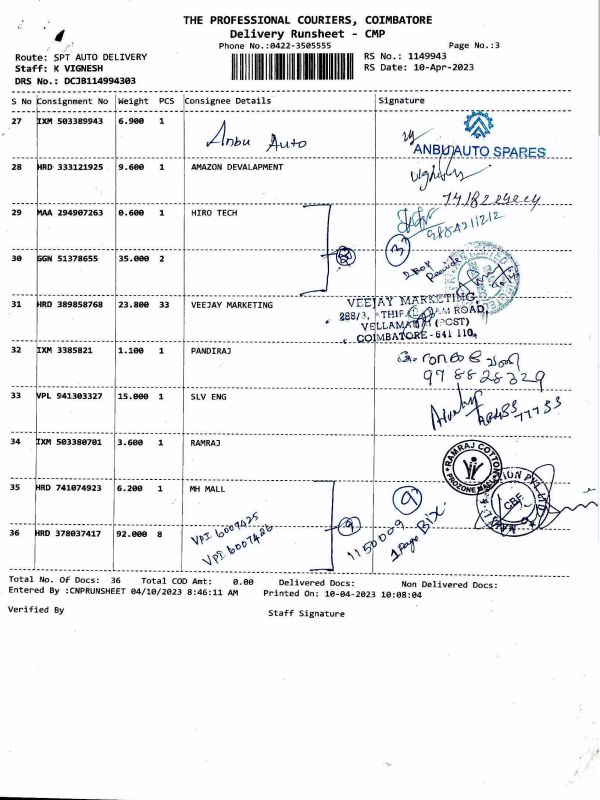 THE PROFESSIONAL COURIERS, COIMBATORE
Delivery Runsheet - CMP
Phone No.:0422-3505555 Page No.:3
Route: SPT AUTO DELIVERY RS No.: 1149943
Staff: K VIGNESH RS Date: 10-Apr-2023
DRS No.: DCJB114994303
S No Consignment No Weight PCS Consignee Details Signature
27 IXM 503389943 6.900 1 Anbu Auto
ANBU AUTO SPARES
28 HRD 333121925 9.600 1 AMAZON DEVALAPMENT
29 MAA 294907263 0.600 1 HIRO TECH
9884211212
30 GGN 51378655 35.000 2
31 HRD 389858768 23.800 33 VEEJAY MARKETING
VEEJAY MARKETING
288/3, ROAD,
(POST)
COIMBATORE - 641 110
32 IXM 3385821 1.100 1 PANDIRAJ
9788828329
33 VPL 941303327 15.000 1 SLV ENG
34 IXM 503380701 3.600 1 RAMRAJ
RAMRAJ COTTON
35 HRD 741074923 6.200 1 MH MALL
36 HRD 378037417 92.000 8
VPI 6007425
VPI 6007426
9
1150009
9
Total No. Of Docs: 36 Total COD Amt: 0.00 Delivered Docs: Non Delivered Docs:
Entered By :CNPRUNSHEET 04/10/2023 8:46:11 AM Printed On: 10-04-2023 10:08:04
Verified By Staff Signature